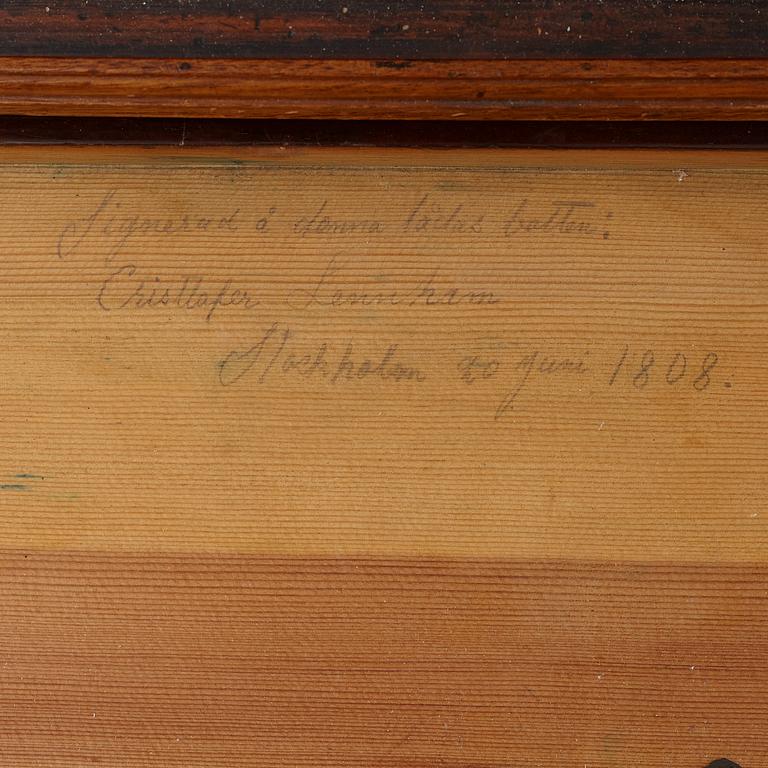 Signerad å denna lådas botten:
Cristtafer Lenniham
Stockholm 20 juni 1808.